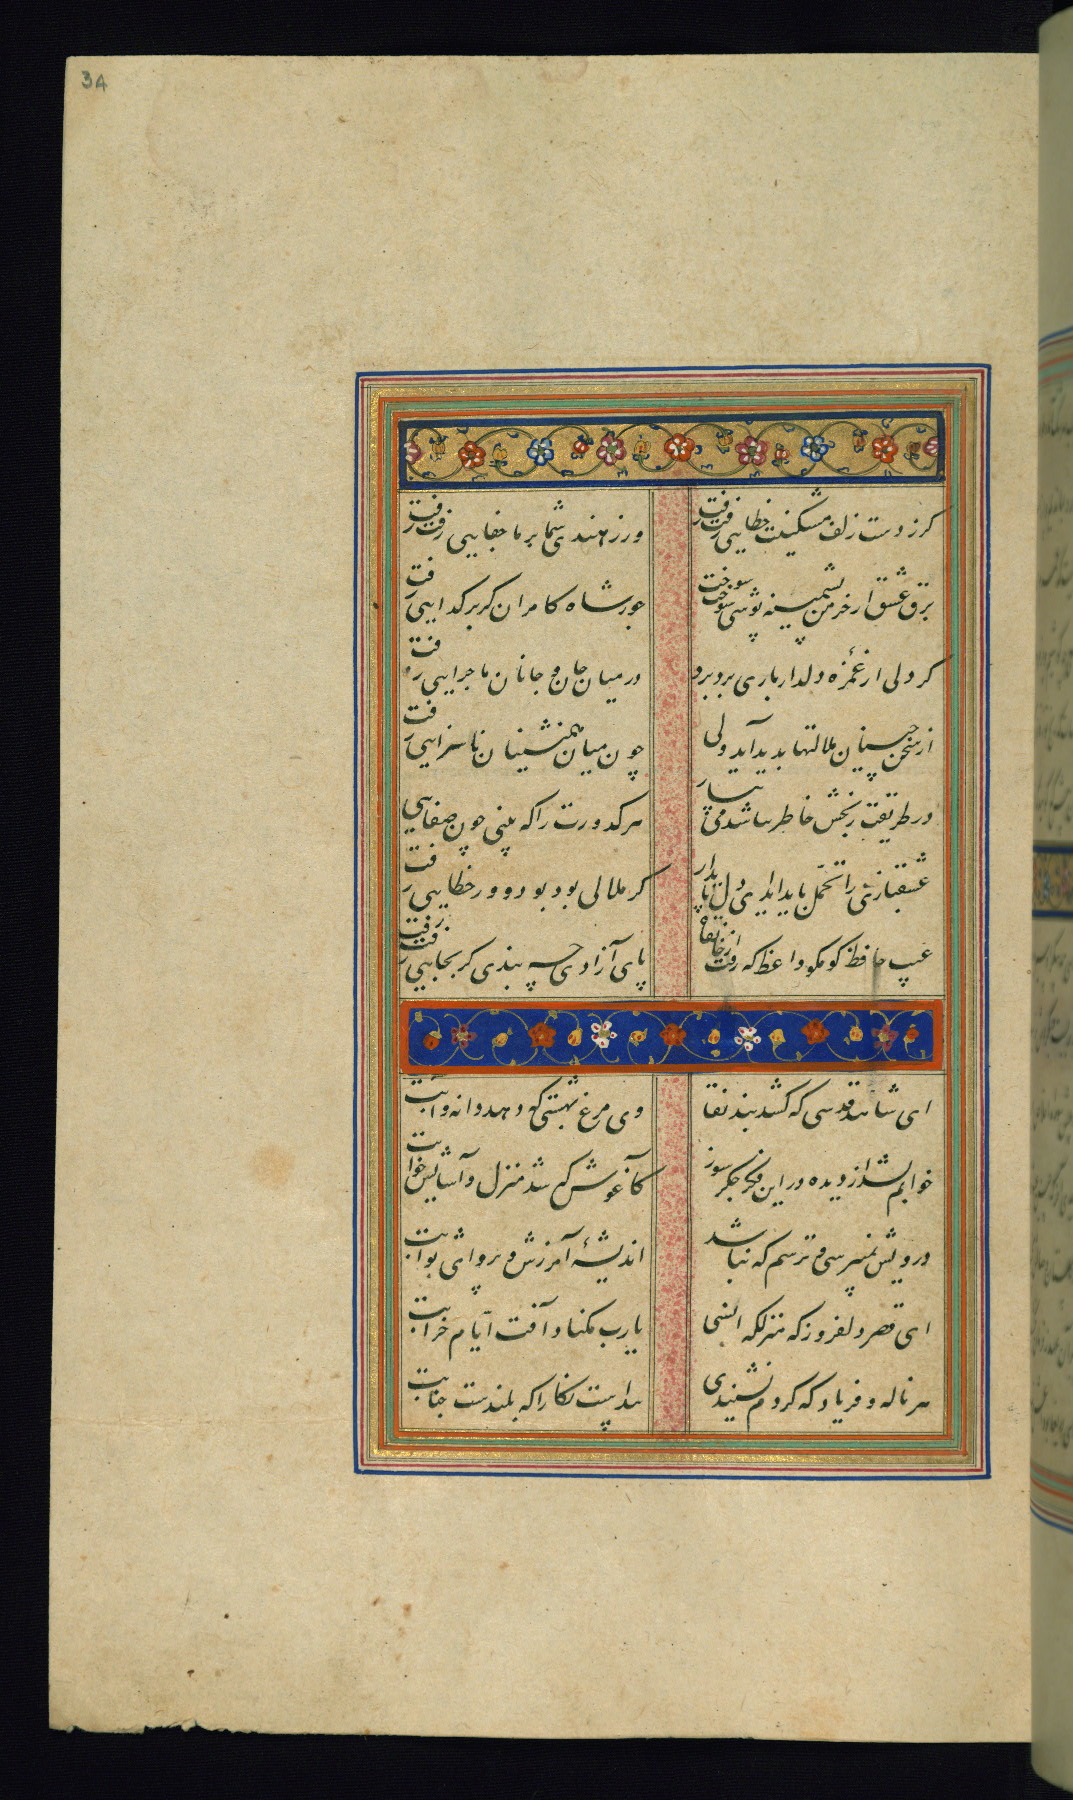 34
کر ز دست زلف مشکینت خطایی رفت رفت
ور ز هندوی شما بر ما جفایی رفت رفت
برق عشق ار خرمن پشمینه پوشی سوخت سوخت
جور شاه کامران کر بر کدایی رفت
کر دلی از غمزه دلدار باری برد برد
در میان جان و جانان ماجرایی رفت
از سخن چینان ملالتها بدید آید ولی
چون میان همنشینان ناسزایی رفت
در طریقت رنجش خاطر نباشد می بیار
هر کدورت را که بینی چون صفایی رفت
عشقبازی را تحمل باید ای دل پای دار
کر ملالی بود بود و ور خطایی رفت
عیب حافظ کو مکو واعظ که رفت از خانقاه
پای آزادی چه بندی کر بجایی رفت رفت
ای شاهد قدسی که کشد بند نقابت
وی مرغ بهشتی که دهد دانه و آبت
خوابم بشد از دیده در این فکر جکر سوز
کاغوش که شد منزل و آسایش خوابت
درویش نمیپرسی و ترسم که نباشد
اندیشهٔ آمرزش و پروای ثوابت
ای قصر دلفروز که منزلکه انسی
یا رب مکناد آفت ایام خرابت
هر ناله و فریاد که کردم نشنیدی
پیداست نکارا که بلندست جنابت